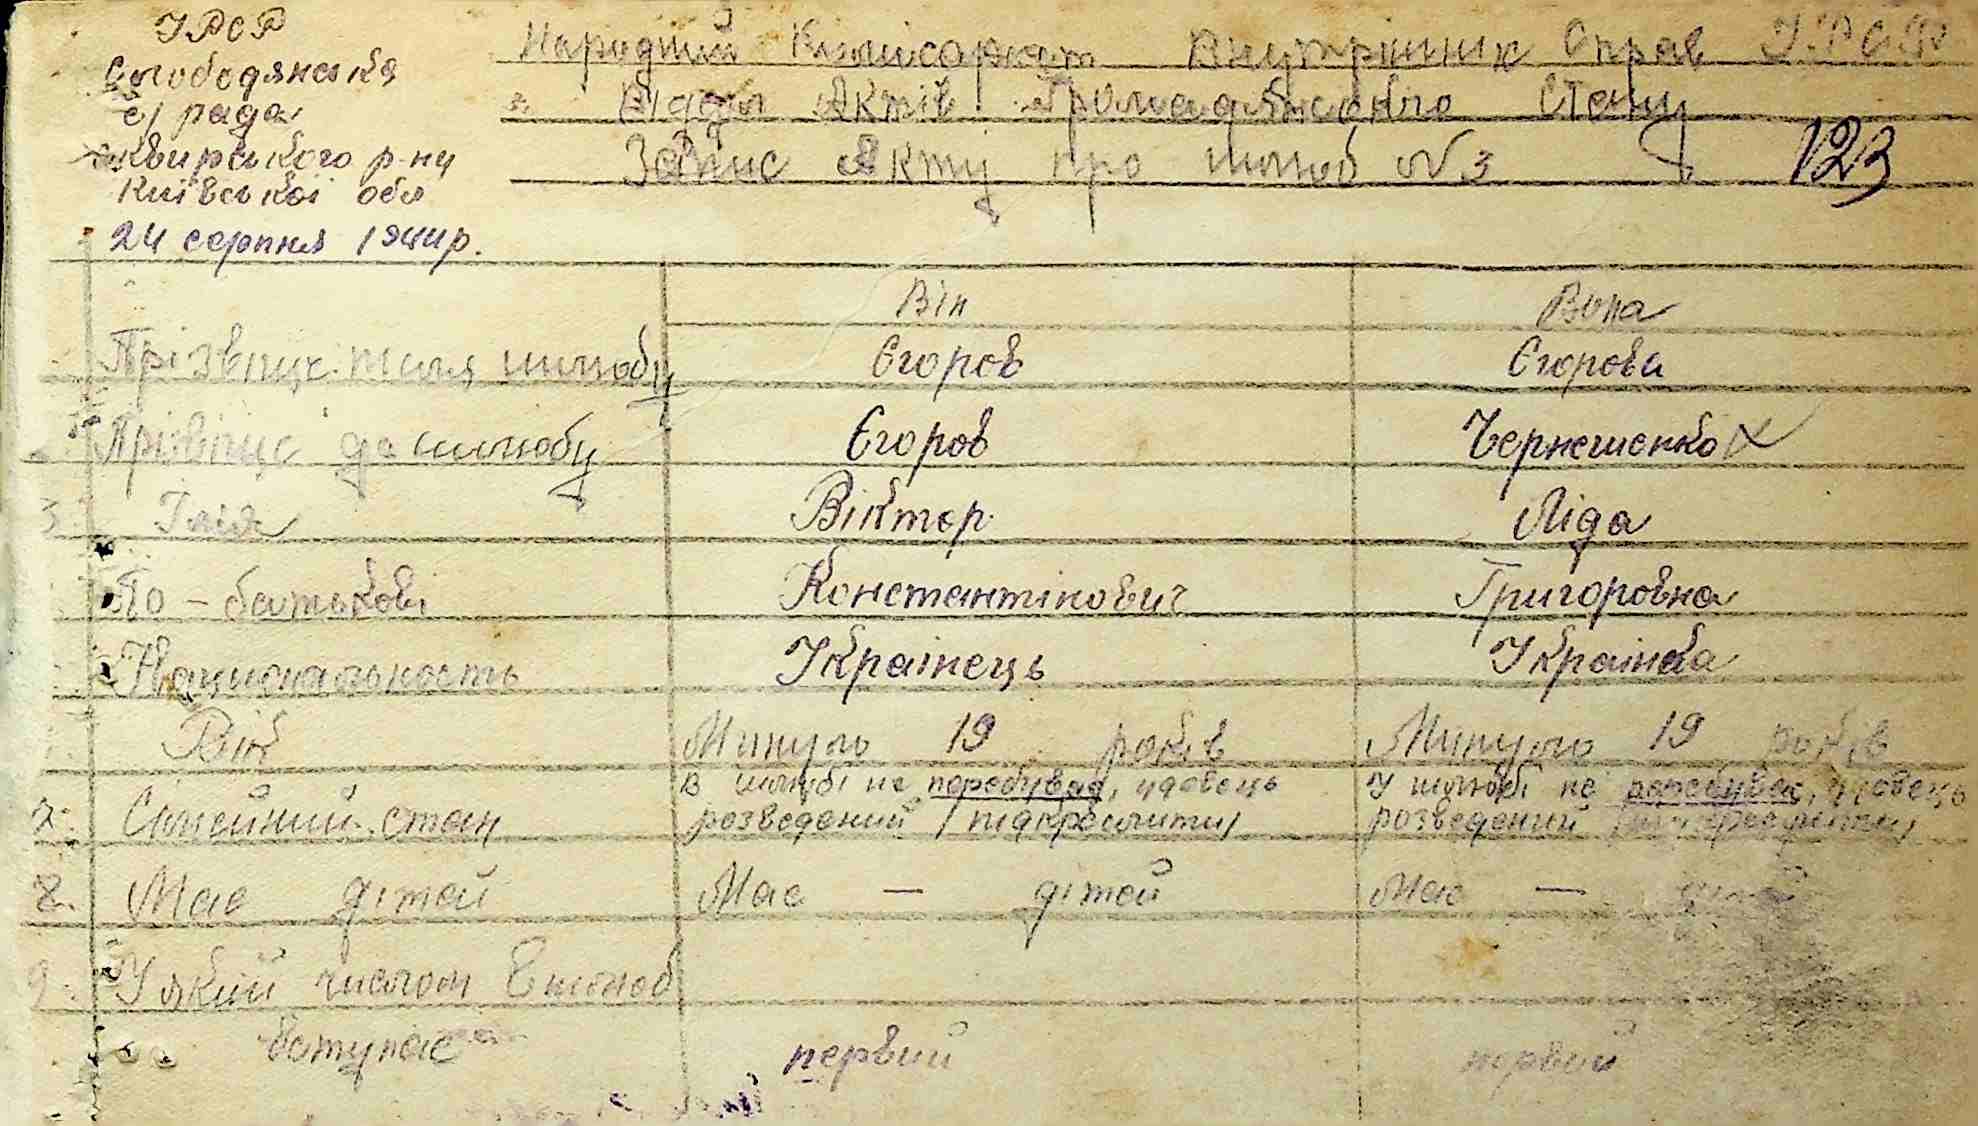 УРСР
Слободянська
с/рада
Сквирського р-ну
Київської обл
24 серпня 1944р.
Народний Комісаріат Внутрішніх Справ У.Р.С.Р
Відділ Актів Громадянського Стану
Запис Акту про шлюб №3
123
Він Вона
Прізвище після шлюбу Єгоров Єгорова
Прізвище до шлюбу Єгоров Чернешенко
3. Імя Віктор Ліда
По-батькові Константінович Григоровна
Национальность Українець Українка
Вік Минуло 19 років Минуло 19 років
7. Сімейний стан В шлюбі не перебував, удовець У шлюбі не перебував, удовець
розведений /підкреслити/ розведений /підкреслити/
8. Має дітей Має — дітей Має — дітей
9. У який числом в шлюб
вступає первий первий